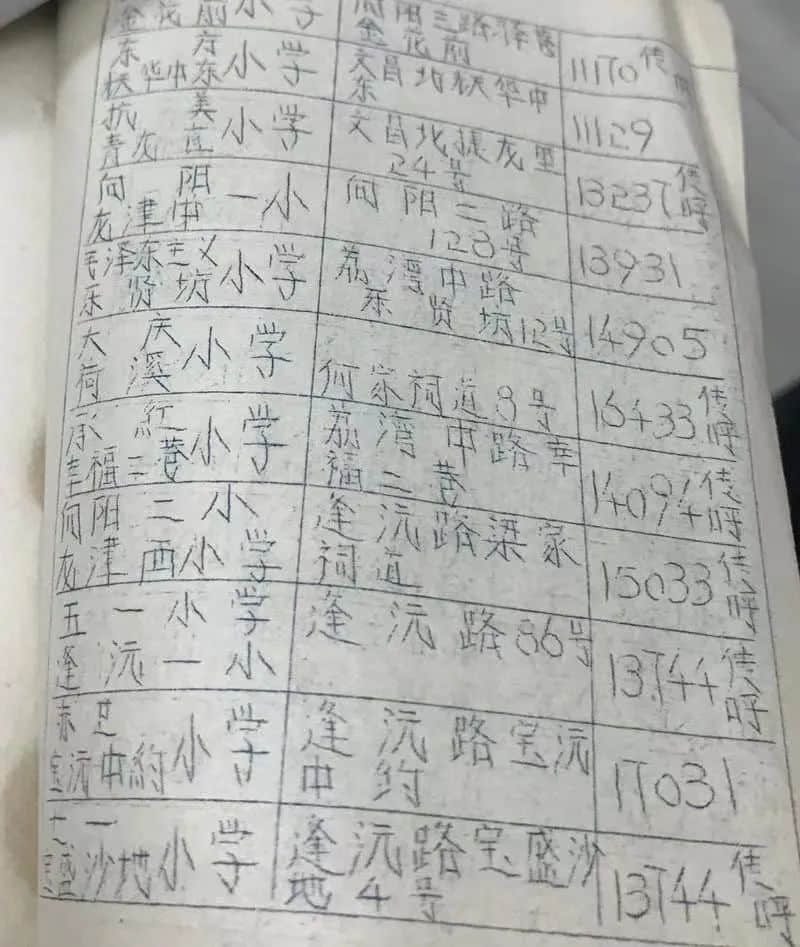 金花廟小学
向阳三路
金花廟
11170 传呼
东方
秋华中东 小学
文昌北秋华中
东
11129
抗美
青龙直 小学
文昌北振龙里
24号
13237 传呼
向阳
龙津中 一小
向阳三路
123号
13931
毛泽东主义
乐贤坊 小学
荔湾中路
乐贤坊12号
14905
大庆
荷溪 小学
何家祠道8号
16433 传呼
紅
幸福二巷 小学
荔湾中路幸
福二巷
14094 传呼
向阳二小
龙津西小学
逢沅路梁家
祠道
15033 传呼
五一小学
逢沅一小
逢沅路86号
13744 传呼
宝沅中約 小学
逢沅路宝沅
中约
17031
一
盛沙地 小学
逢沅路宝盛沙
地4号
13744 传呼